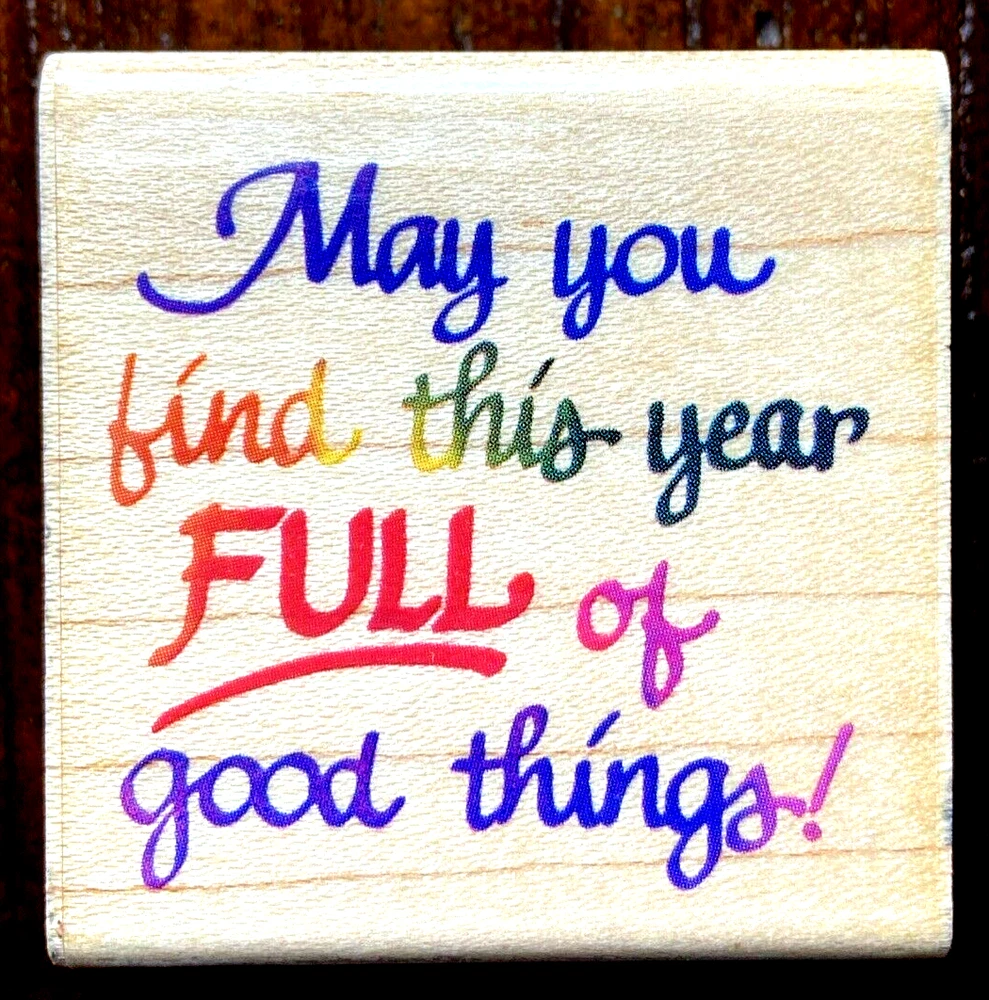 May you
find this year
FULL of
good things!